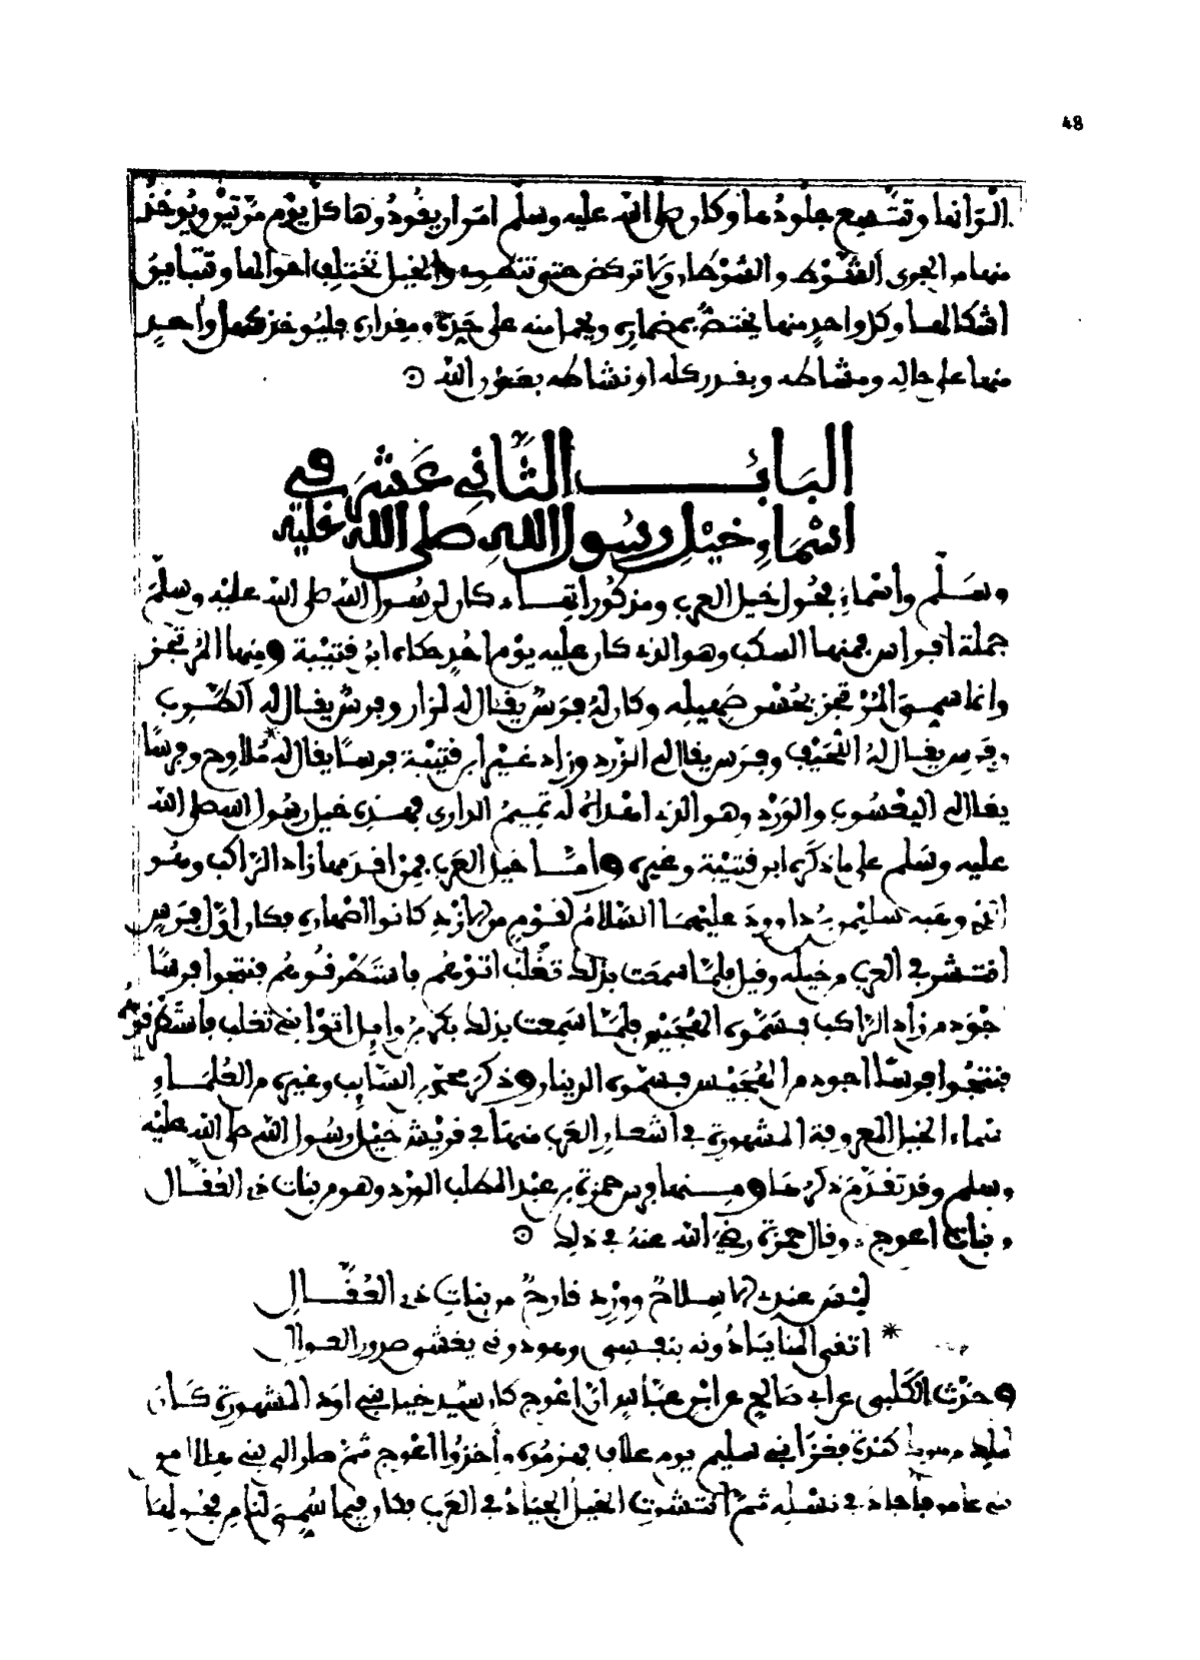 48
الوانها وتتسع جلودها وكان صلى الله عليه وسلم امر ان يقودوها كل يوم مرتين ويوخذ
منها من الجرى الشوط والشوطان ولا تركض حتى والخيل تختلف احوالها وتتباين
اشكالها وكل واحد منها يختص بمضماره ويحمل منه على حدة ومقداره فليوخذ كل واحد
منها على حاله ومشاطه وبقدر كله او نشاطه بعون الله
البَابُ الثَّانِي عَشَر فِي
اسْمَاءِ خَيْلِ رَسُولِ اللهِ صَلى اللهُ عَليْهِ
وسَلَّم وأسْماءِ فحُول خيل العرب ومذكُوراتهَا كان لرسُول الله صلى الله عليْه وسلَّم
جملة افراس فمنها السكب وهو الذى كان عليه يوم احُدٍ حكاه ابن قتيْبة ومنها المُرتجز
وانما سمي المرْتجز بحُسْن صَهيله وكان لهُ فرَسٌ يقال له لزاز وفرسٌ يقال له الظَّرِب
وفرس يقال لهُ اللّحَيْف وفرس يقال له الوَرد وزاد غيْر ابن قتيْبَة فرسًا يقال له مُلاوح وفرسًا
يقال له اليعْسُوب والوَرْد وهو الذى اهْداهُ له تميمُ الداري فهذه خيل رسُول الله صلى الله
عليه وسَلم على ما ذكره ابن قتيْبَة وغيره وأمَّا خيل العَرب فمن اقدمها زاد الراكب وهُو
الذى وهبه سليمن بنُ داوودَ عليْهما السَّلامُ لقوْم من الازد كانوا اصهاره فكان اوّل فرَس
انتشر في العرب من خيله وقيل فلمَّا سمعت بذلك تغْلب اتوْهم فاستطرقُوهُم فنتجوا فرسًا
اجْوَد من زاد الرّاكب فسَمّوه الهُجَيْس فلمَّا سَمِعت بذلك بكر بن وايل اتوْا بني تغلب فاستطرقوهم
فنتجُوا فرسًا اجود من الهُجَيْس فسموه الدينار وذكر محمد بن السَّايب وغيره من العُلمَاءِ
اسماء الخيل المعروفة المشهورة في اشعار العَرب منها في قريْش خيْل رسُول الله صلى الله عليْه
وسلم وقد تقدَّم ذكرهَا ومنها فرس حمزة بن عبْد المطلب الورْد وهو من بنات ذى العُقَّال
من بنات اعوج وقال حمزة رضي الله عنهُ في ذلك
ليْسَ عندي الا سِلاحٌ ووَرْد قارحٌ من بناتِ ذى العُقَّالِ
اتقي المنايَا دُونه بنفسي وهو دوني يغشى صدور العوالي
حدّث الكَلبي عن ابي صَالح عن ابْن عبَّاس انّ اعْوج كان سيّد خيل المشهورة كَان
لملك كندة فغزَا بني سليم يوم علاف فهزمُوه وأخذُوا اعْوج ثمّ صار الى بني هلال بن
عامر فاجاد في نسْله ثمّ انتشرت الخيل الجيَادُ في العَرب فكان فيما سُمّيَ لنا من فحُولهَا